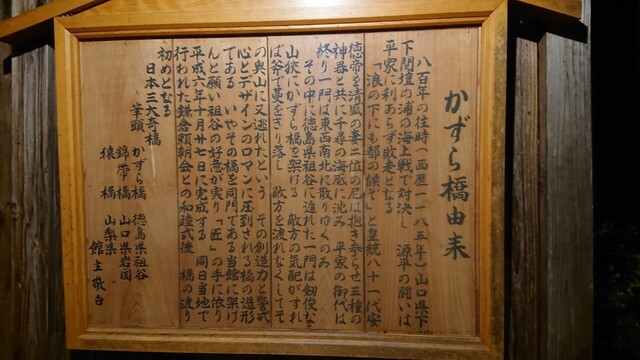 かずら橋由来
八百年の往時(西暦一一八五年)山口県下
下関壇の浦の海上戦で対決し 源平の闘いは
平家に利あらず敗走となる
「浪の下にも都の候ぞ」と皇統八十一代安
徳帝を清盛の妻二位の尼は抱き参らせ三種の
神器と共に千尋の海底に沈み 平家の御代は
終り一門は東西南北に散りゆくのみ
その中に徳島県祖谷に逃れた一門は剣俊な
山狭にかずら橋を架ける 敵方の気配がすれ
ば斧で蔓をきり落し 敵方を渡れなくしてそ
の奥山に又逃れたという その創造力と警戒
心とデザインのロマンに圧到される橋の造形
である いやその橋を同門である当館に架け
んと願い祖谷の好意が実り「匠」の手に依り
平成六年十月廿七日に完成する 同日当地で
行われた鎌倉頼朝会との和睦式後 橋の渡り
初めとなる
日本三大奇橋
筆頭 かずら橋 徳島県祖谷
錦帯橋 山口県岩国
猿橋 山梨県
館主敬白